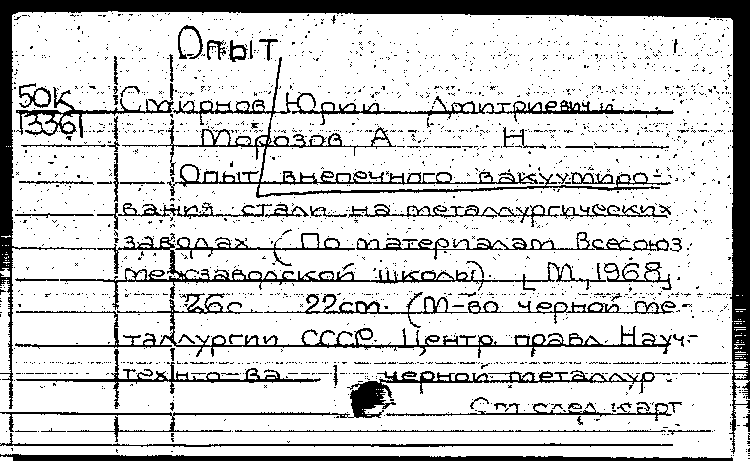 Опыт
50К Смирнов Юрий Дмитриевич и
1336 Морозов А Н
Опыт внепечного вакуумиро-
вания стали на металлургических
заводах (По материалам Всесоюз.
межзаводской школы) [М., 1968]
26с. 22см. (М-во черной ме-
таллургии СССР. Центр. правл. Науч-
техн. о-ва черной металлур.
См след карт